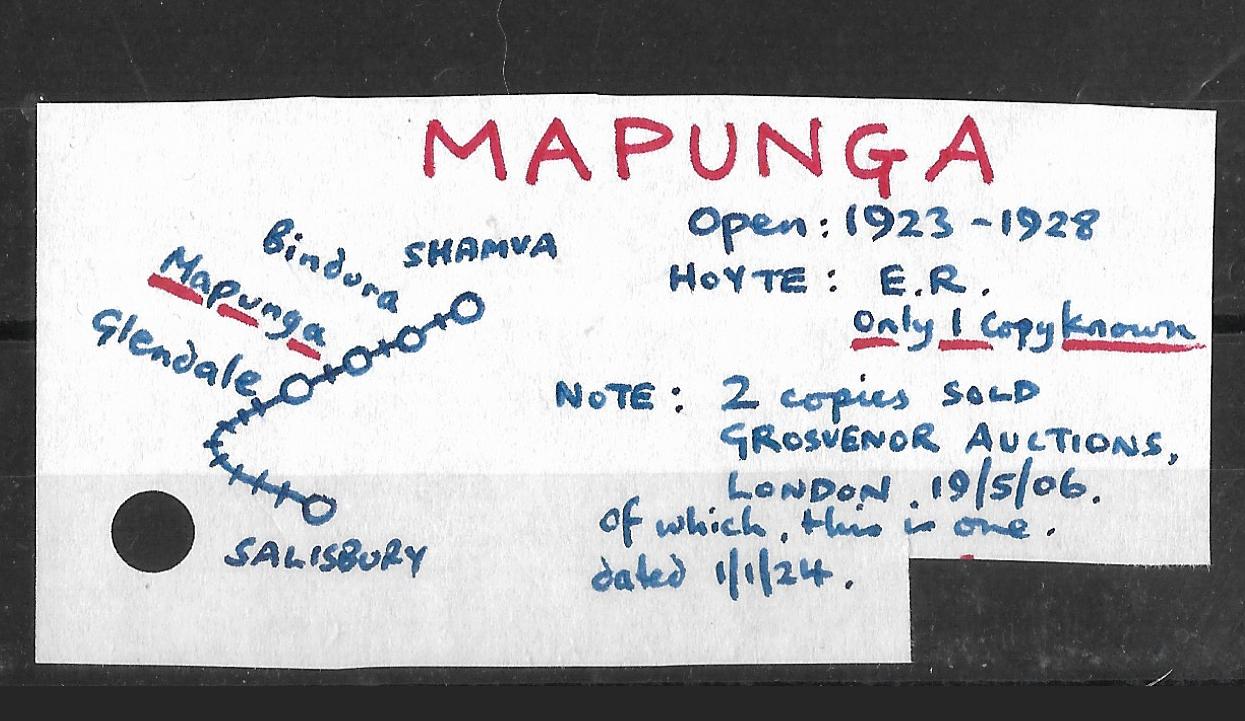 MAPUNGA
Open: 1923 - 1928
HOYTE: E.R.
Only 1 Copy Known
NOTE: 2 copies SOLD
GROSVENOR AUCTIONS,
LONDON. 19/5/06.
Of which, this is one.
dated 1/1/24.
SHAMVA
Bindura
Mapunga
Glendale
SALISBURY